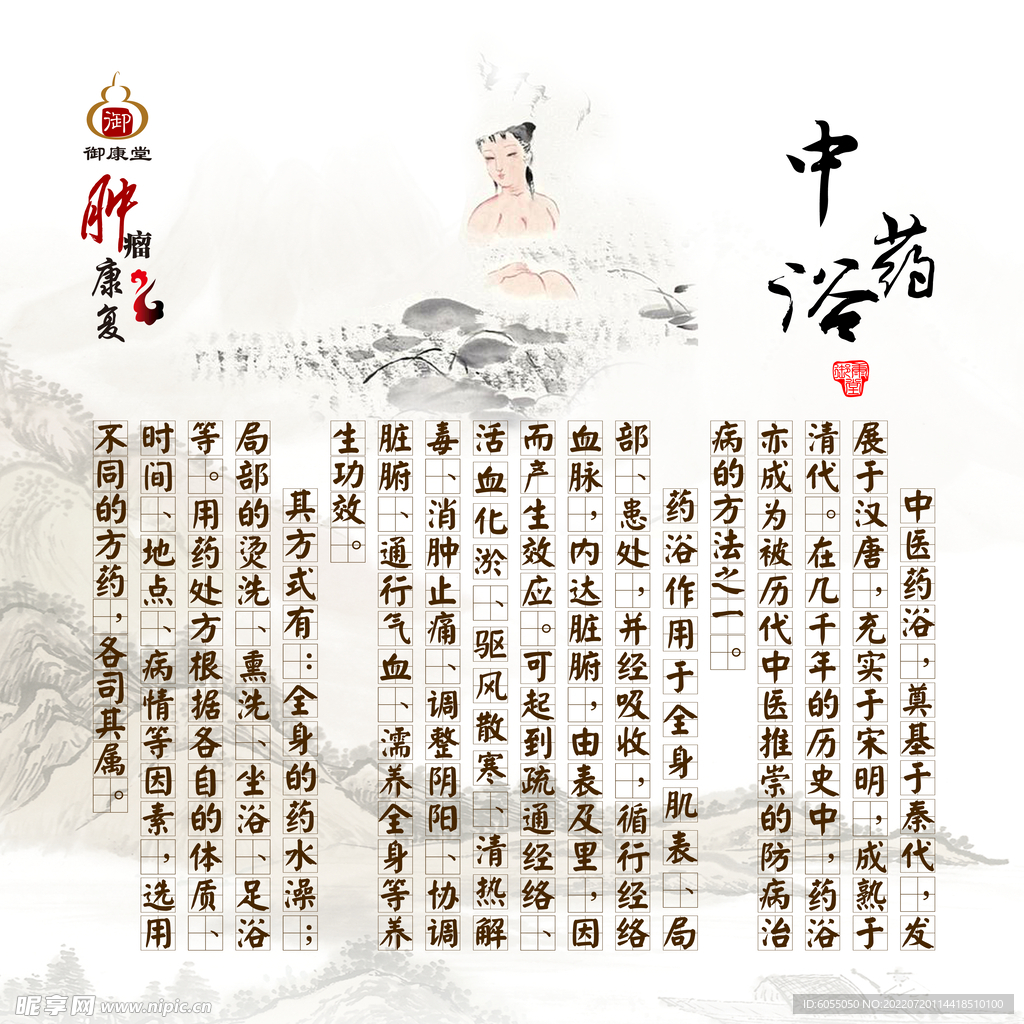 御
御康堂
肿瘤康复
中药浴
御康堂
中医药浴，奠基于秦代，发
展于汉唐，充实于宋明，成熟于
清代。在几千年的历史中，药浴
亦成为被历代中医推崇的防病治
病的方法之一。
药浴作用于全身肌表、局
部、患处，并经吸收，循行经络
血脉，内达脏腑，由表及里，因
而产生效应。可起到疏通经络、
活血化淤、驱风散寒、清热解
毒、消肿止痛、调整阴阳、协调
脏腑、通行气血、濡养全身等养
生功效。
其方式有：全身的药水澡；
局部的烫洗、熏洗、坐浴、足浴
等。用药处方根据各自的体质、
时间、地点、病情等因素，选用
不同的方药，各司其属。
昵享网 www.nipic.cn
ID:6055050 NO:20220720114418510100